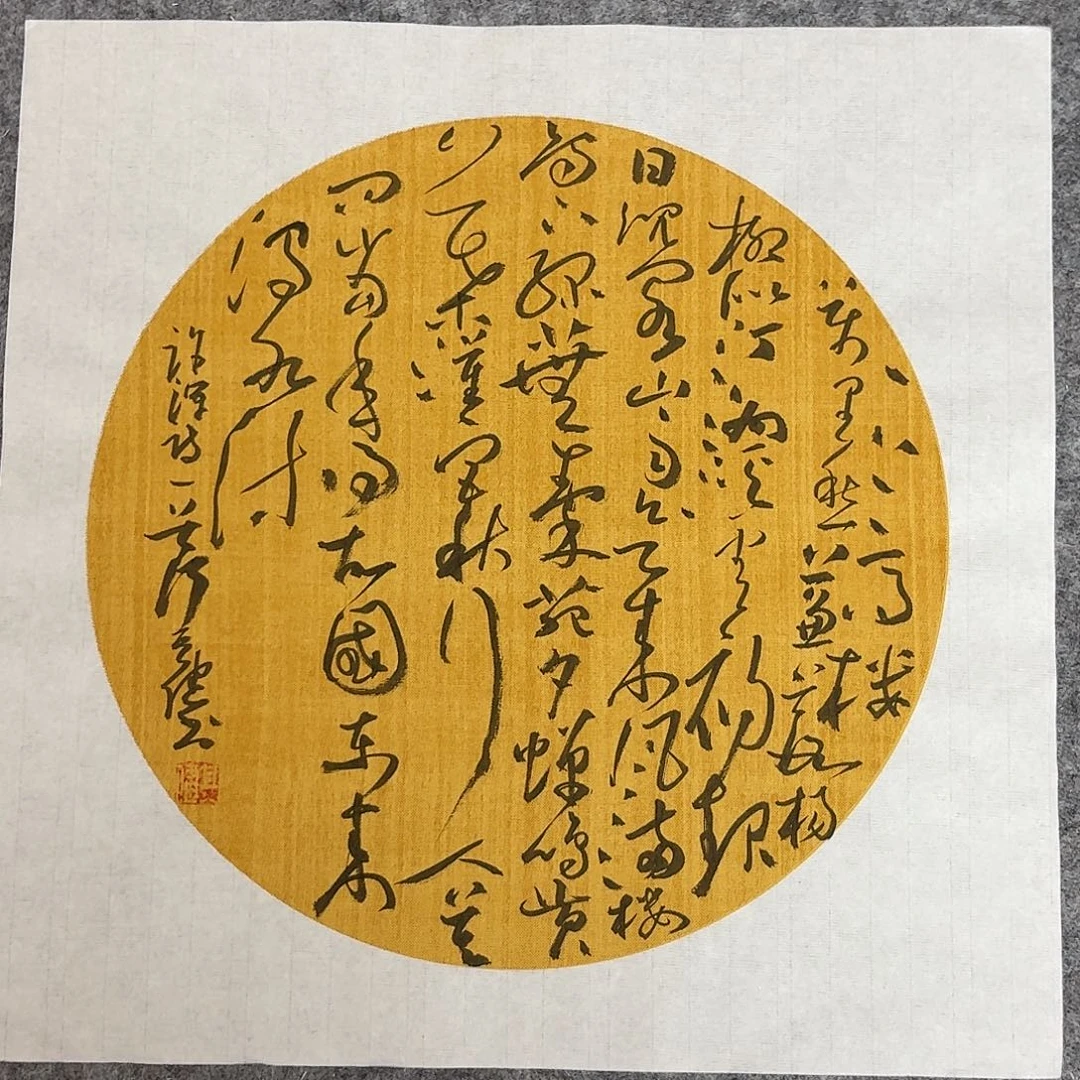 一上高楼
萬里愁蒹葭杨
柳似汀洲溪雲初起
日沉閣山雨欲来風满楼
鳥下綠蕪秦苑夕蟬鳴黄
葉漢宫秋行人莫
問當年事故國东来
渭水流
許渾诗一首